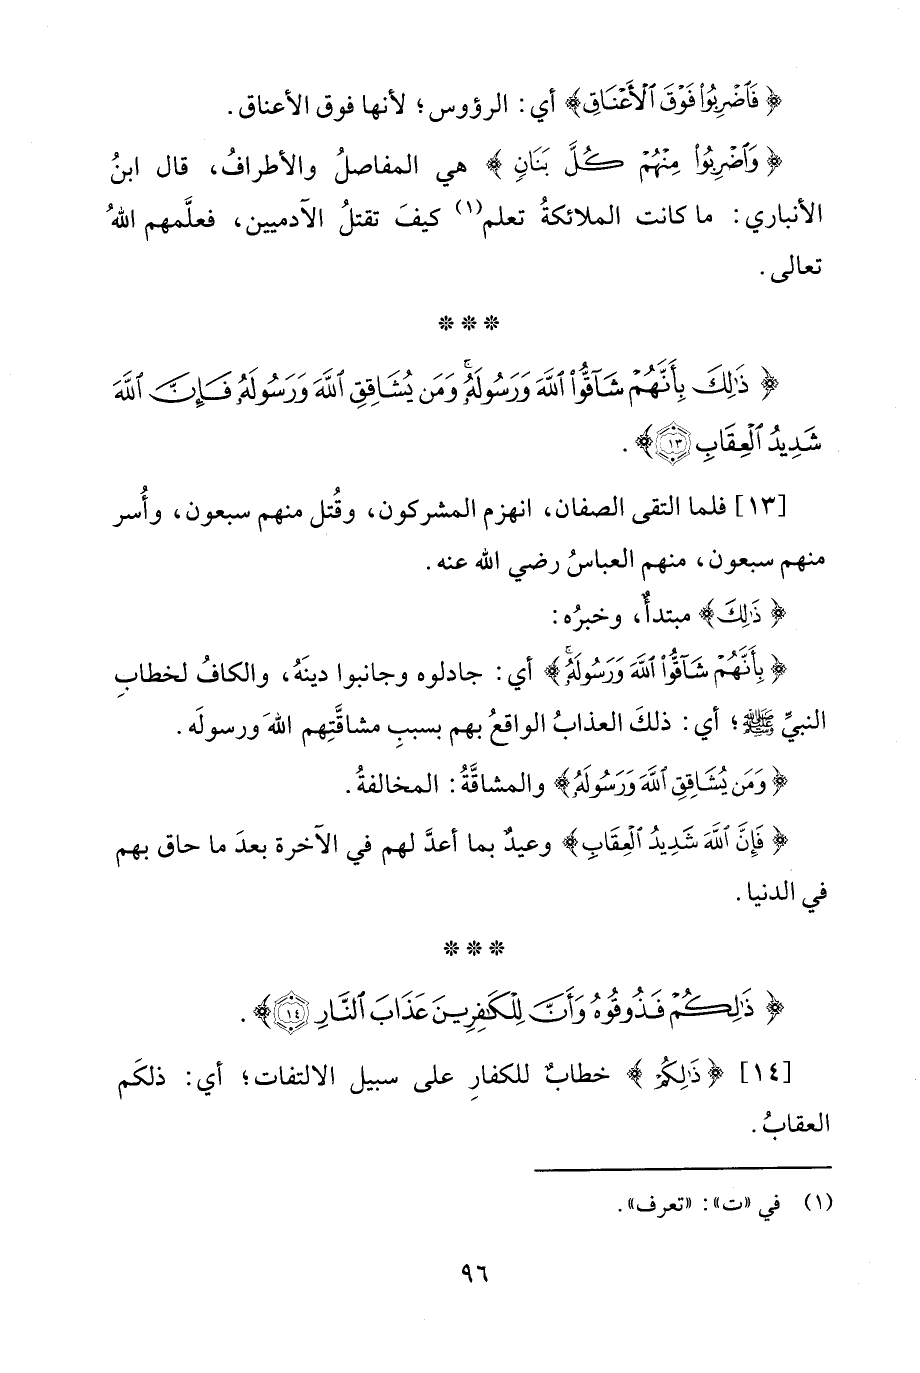 ﴿ فَٱضْرِبُوا۟ فَوْقَ ٱلْأَعْنَاقِ﴾ أي: الرؤوس؛ لأنها فوق الأعناق.
﴿ وَٱضْرِبُوا۟ مِنْهُمْ كُلَّ بَنَانٍ ﴾ هي المفاصلُ والأطرافُ، قال ابنُ
الأنباري: ما كانت الملائكةُ تعلم(١) كيفَ تقتلُ الآدميين، فعلَّمهم اللهُ
تعالى.
***
﴿ ذَٰلِكَ بِأَنَّهُمْ شَآقُّوا۟ ٱللَّهَ وَرَسُولَهُۥ ۚ وَمَن يُشَاقِقِ ٱللَّهَ وَرَسُولَهُۥ فَإِنَّ ٱللَّهَ
شَدِيدُ ٱلْعِقَابِ ١٣﴾.
[١٣] فلما التقى الصفان، انهزم المشركون، وقُتل منهم سبعون، وأُسر
منهم سبعون، منهم العباسُ رضي الله عنه.
﴿ ذَٰلِكَ﴾ مبتدأٌ، وخبرُه:
﴿ بِأَنَّهُمْ شَآقُّوا۟ ٱللَّهَ وَرَسُولَهُۥ ۚ﴾ أي: جادلوه وجانبوا دينَهُ، والكافُ لخطابِ
النبيِّ ﷺ؛ أي: ذلكَ العذابُ الواقعُ بهم بسببِ مشاقَّتِهم اللهَ ورسولَه.
﴿ وَمَن يُشَاقِقِ ٱللَّهَ وَرَسُولَهُۥ﴾ والمشاقَّةُ: المخالفةُ.
﴿ فَإِنَّ ٱللَّهَ شَدِيدُ ٱلْعِقَابِ﴾ وعيدٌ بما أعدَّ لهم في الآخرة بعدَ ما حاق بهم
في الدنيا.
***
﴿ ذَٰلِكُمْ فَذُوقُوهُ وَأَنَّ لِلْكَٰفِرِينَ عَذَابَ ٱلنَّارِ ١٤﴾.
[١٤] ﴿ ذَٰلِكُمْ ﴾ خطابٌ للكفارِ على سبيل الالتفات؛ أي: ذلكَم
العقابُ.
(١) في «ت»: «تعرف».
٩٦